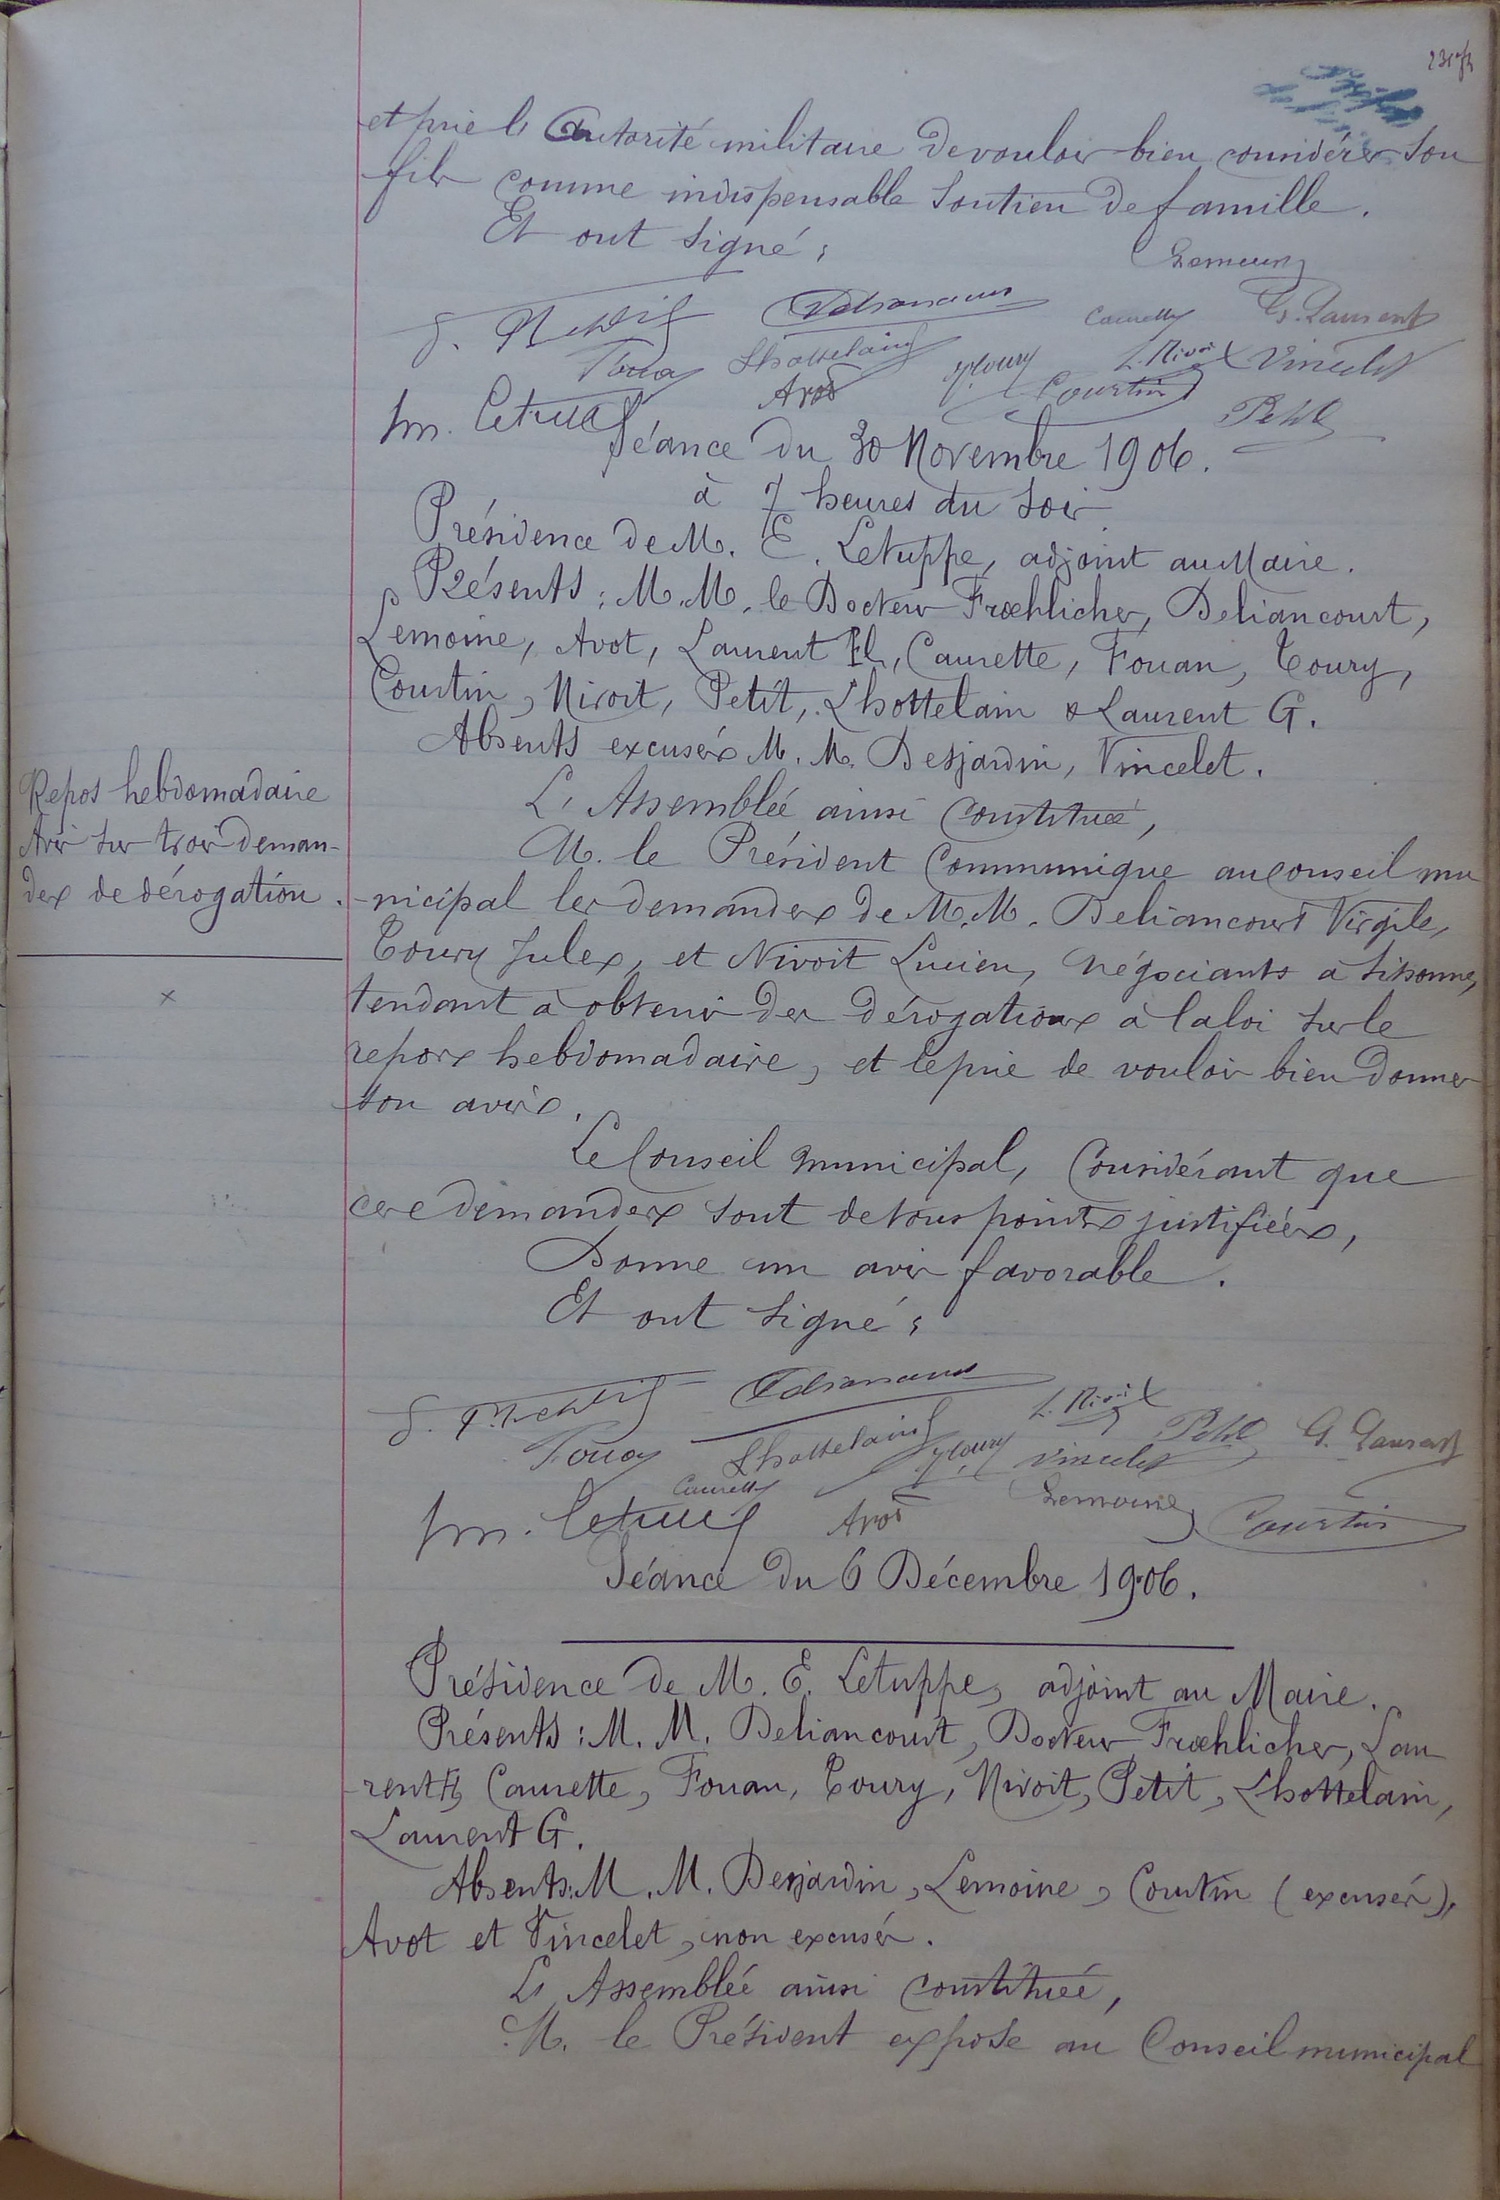 et prie l'Autorité militaire de vouloir bien considérer son
fils comme indispensable soutien de famille.
Et ont signé :
Lemoine
Caurette G. Laurent
Fouan Lhottelain J. Toury L. Nivoit Vincelet
Avot Courtin Petit
Séance du 30 Novembre 1906.
à 7 heures du soir
Présidence de M. E. Letuppe, adjoint au Maire.
Présents : M. M. le Docteur Frœhlicher, Deliancourt,
Lemoine, Avot, Laurent H., Caurette, Fouan, Toury,
Courtin, Nivoit, Petit, Lhottelain & Laurent G.
Absents excusés M. M. Desjardin, Vincelet.
L'Assemblée ainsi constituée,
Repos hebdomadaire
Avis sur trois deman-
des de dérogation.
M. le Président communique au conseil mu
-nicipal les demandes de M. M. Deliancourt Virgile,
Toury Jules, et Nivoit Lucien, négociants à Sissonne,
tendant à obtenir des dérogations à la loi sur le
repos hebdomadaire, et le prie de vouloir bien donner
son avis.
Le Conseil municipal, Considérant que
ces demandes sont de tous points justifiées,
Donne un avis favorable.
Et ont signé :
L. Nivoit
Fouan Lhottelain J. Toury Vincelet Petit G. Laurent
Caurette Avot Lemoine Courtin
Séance du 6 Décembre 1906.
Présidence de M. E. Letuppe, adjoint au Maire.
Présents : M. M. Deliancourt, Docteur Frœhlicher, Lau
-rent H, Caurette, Fouan, Toury, Nivoit, Petit, Lhottelain,
Laurent G.
Absents : M. M. Desjardin, Lemoine, Courtin (excusés),
Avot et Vincelet, non excusés.
L'Assemblée ainsi constituée,
M. le Président expose au Conseil municipal